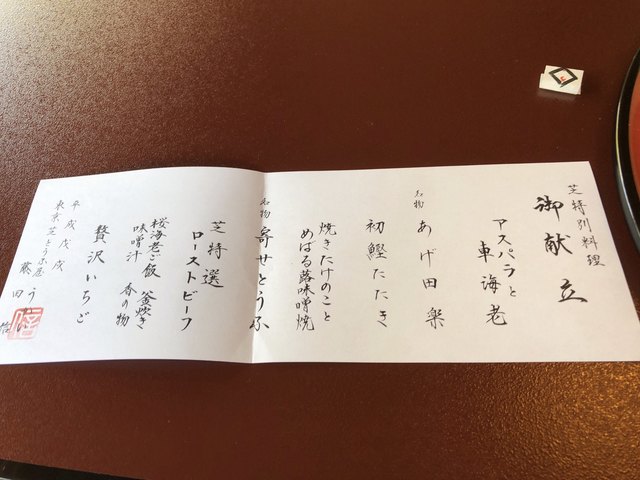 芝特別料理
御献立
アスパラと
車海老
名物
あげ田楽
初鰹たたき
焼きたけのこと
めばる蕗味噌焼
名物
寄せとうふ
芝特選
ローストビーフ
桜海老ご飯 釜炊き
味噌汁 香の物
贅沢いちご
平成戊戌
東京芝とうふ屋うかい
藤田